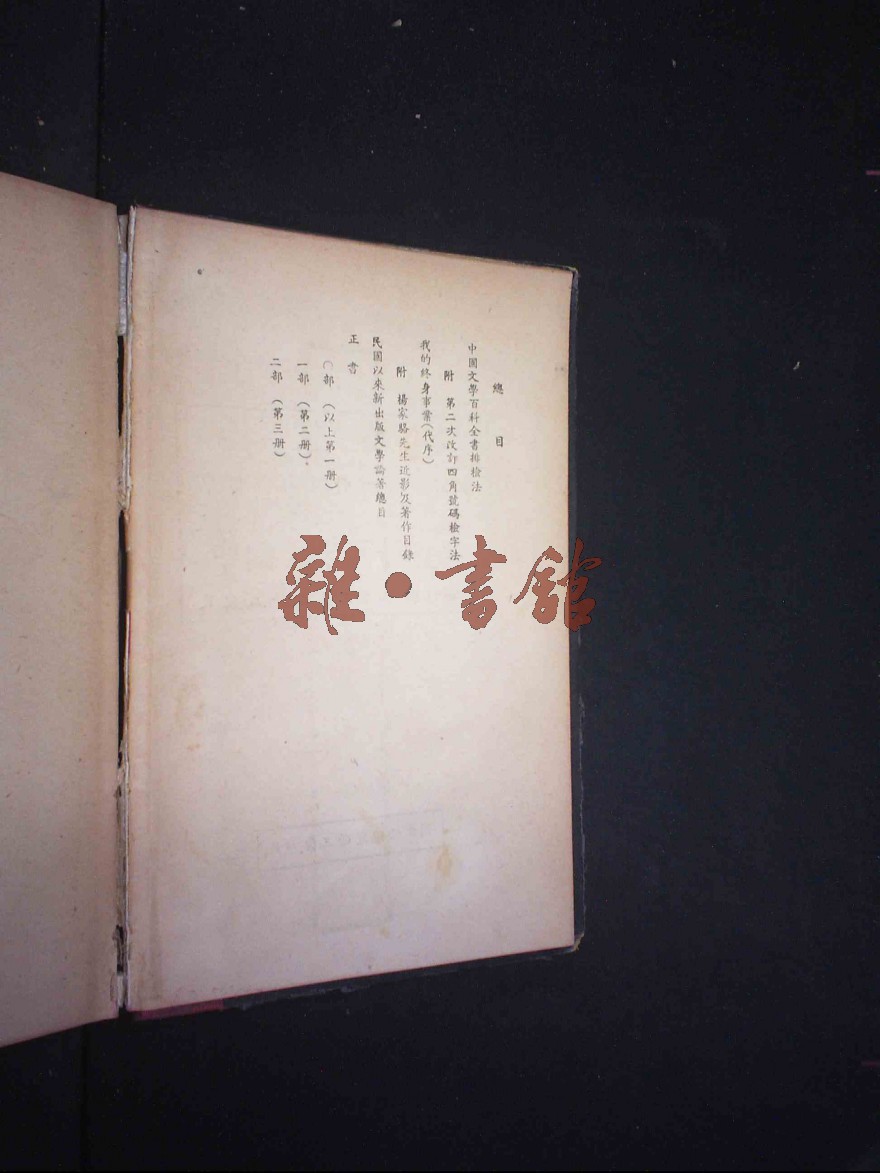 總目
中國文學百科全書排檢法
附 第二次改訂四角號碼檢字法
我的終身事業(代序)
附 楊家駱先生近影及著作目錄
民國以來新出版文學論著總目
正書
〇部 (以上第一册)
一部 (第二册)
二部 (第三册)
雜·書館